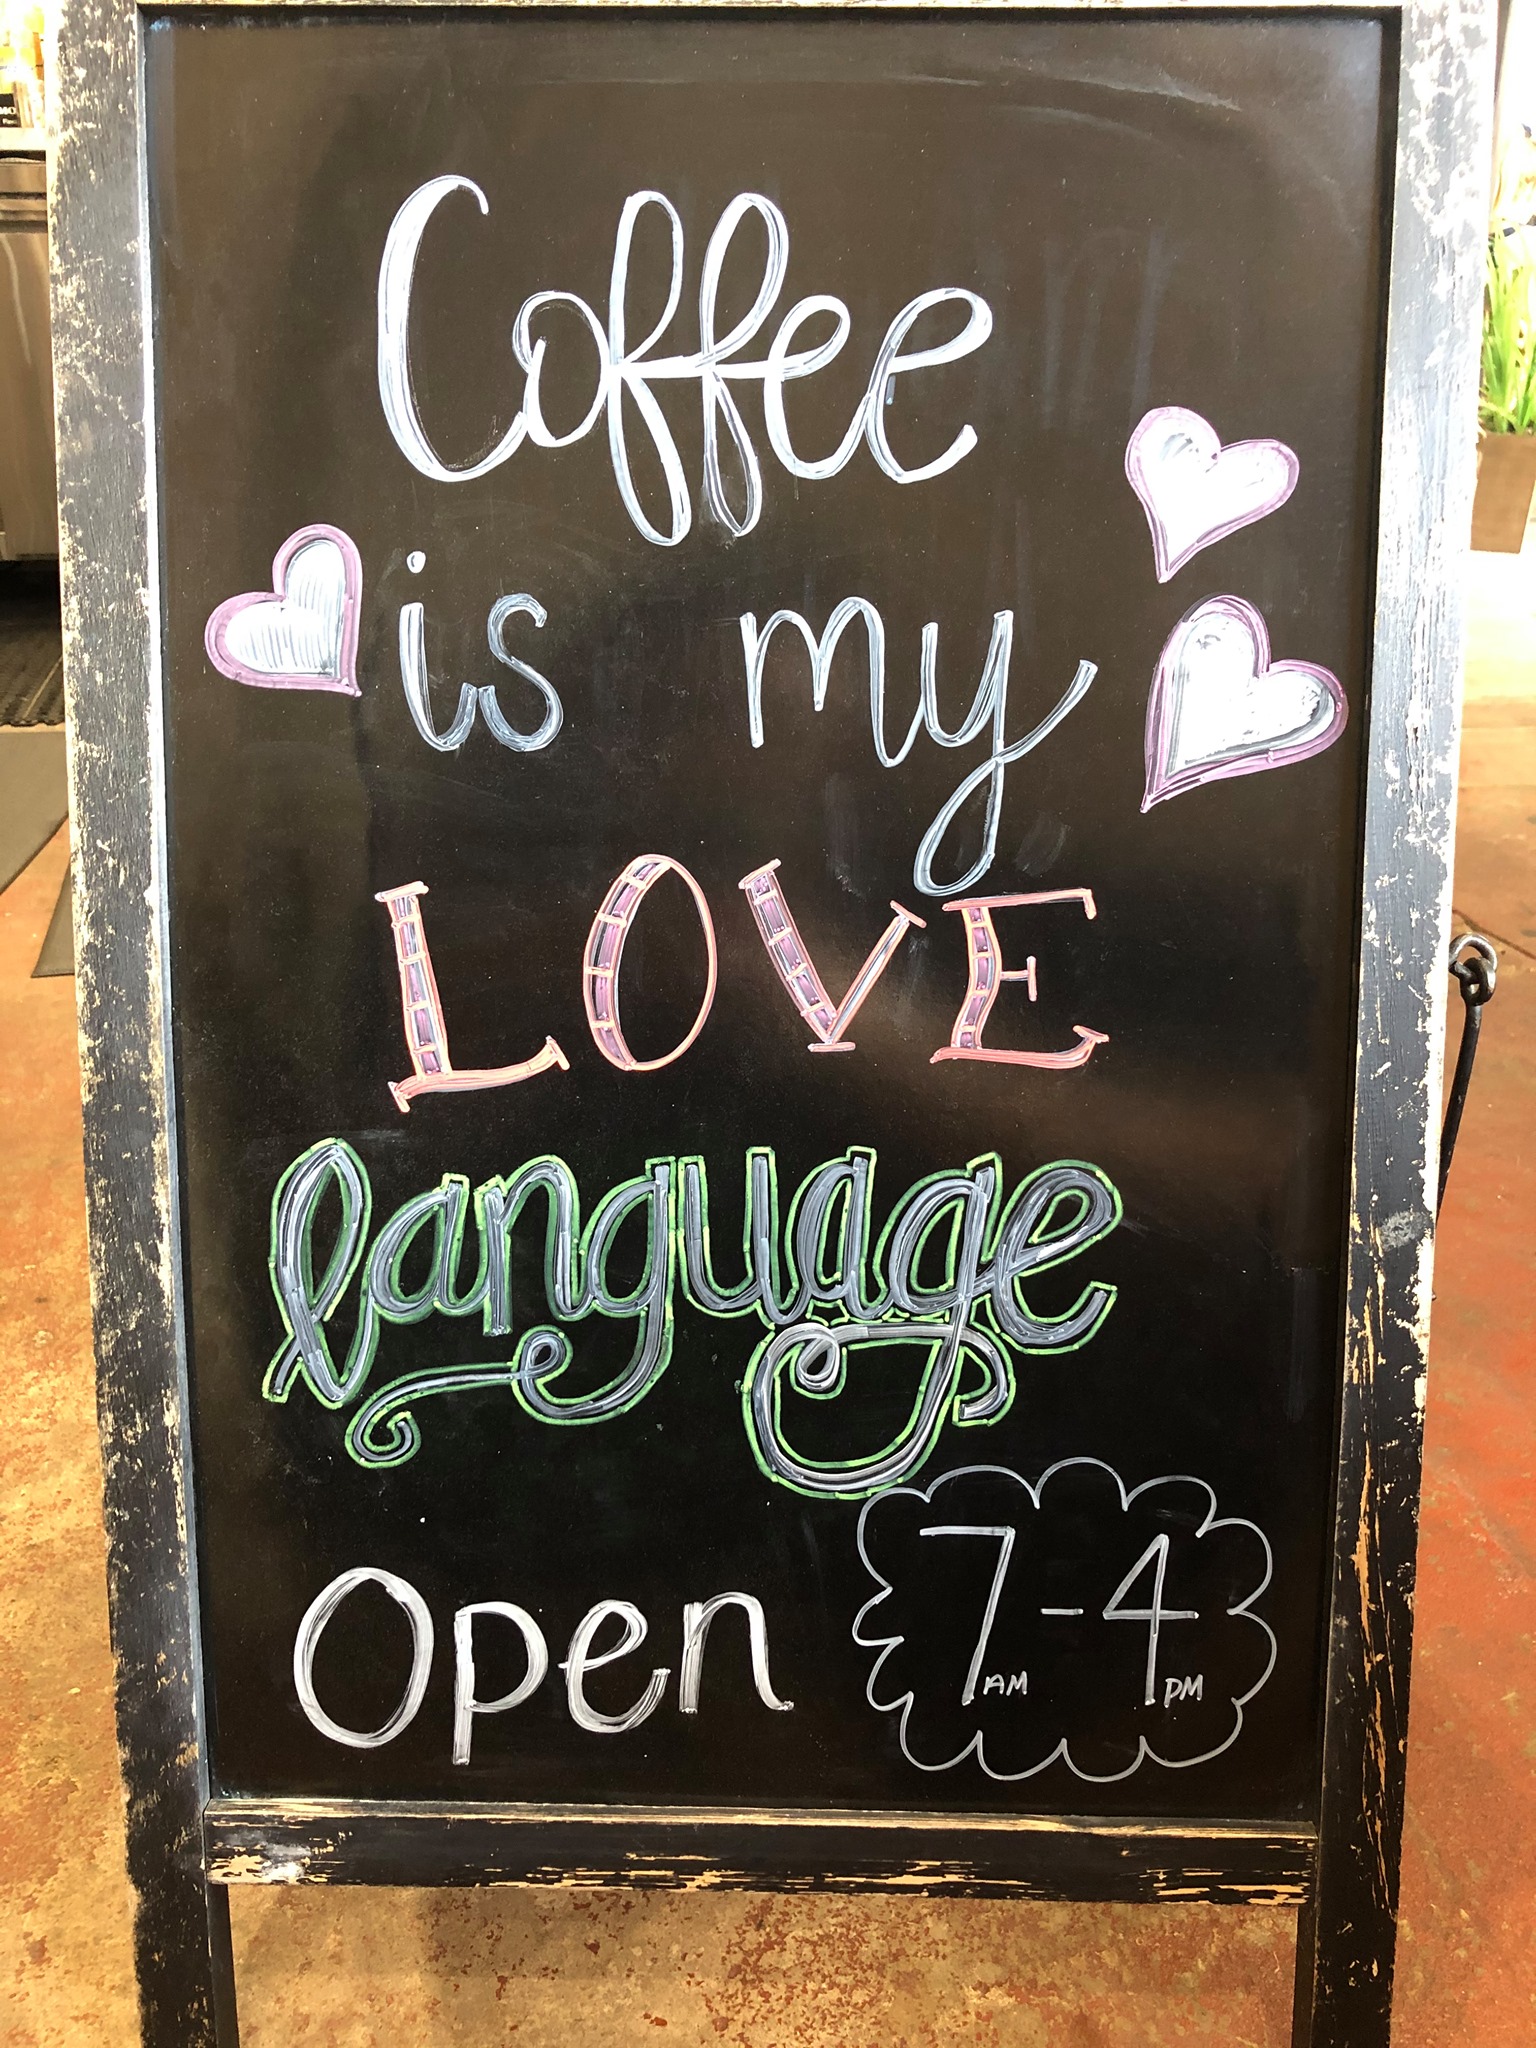 Coffee
is my
LOVE
language
Open 7AM-4PM